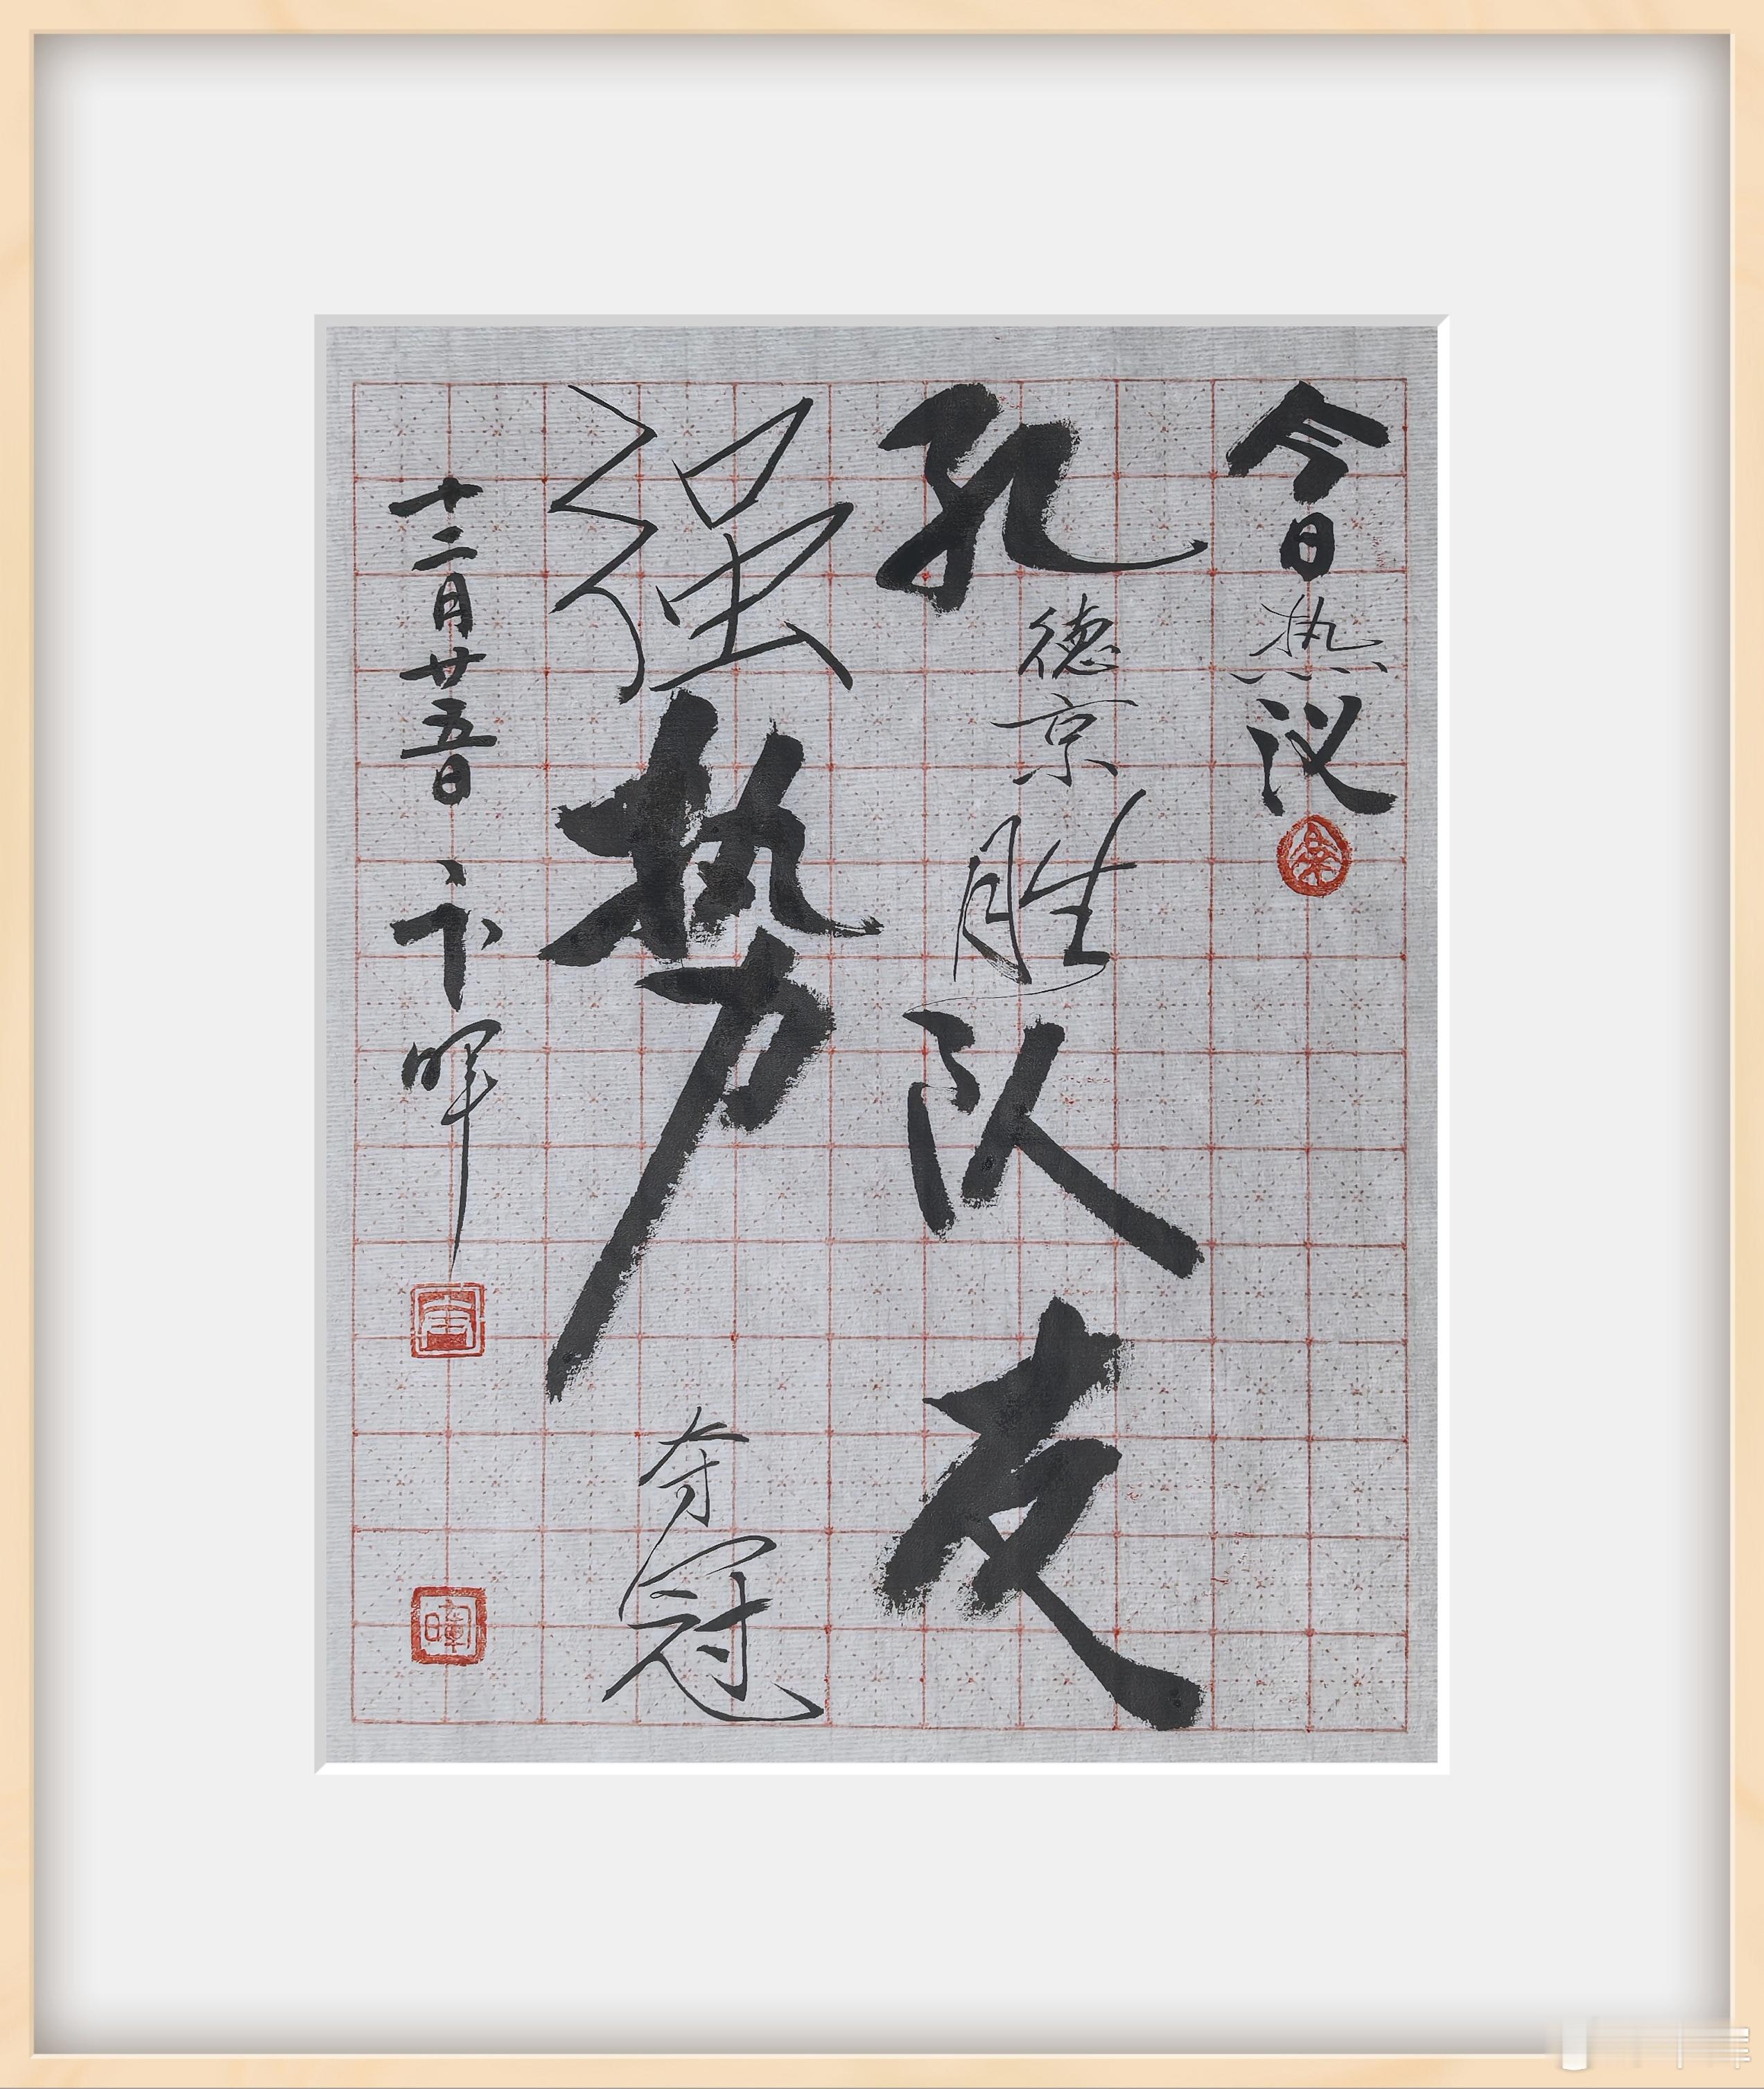 今日热议
孔德京胜队友
强势夺冠
十二月廿五日 卞晖